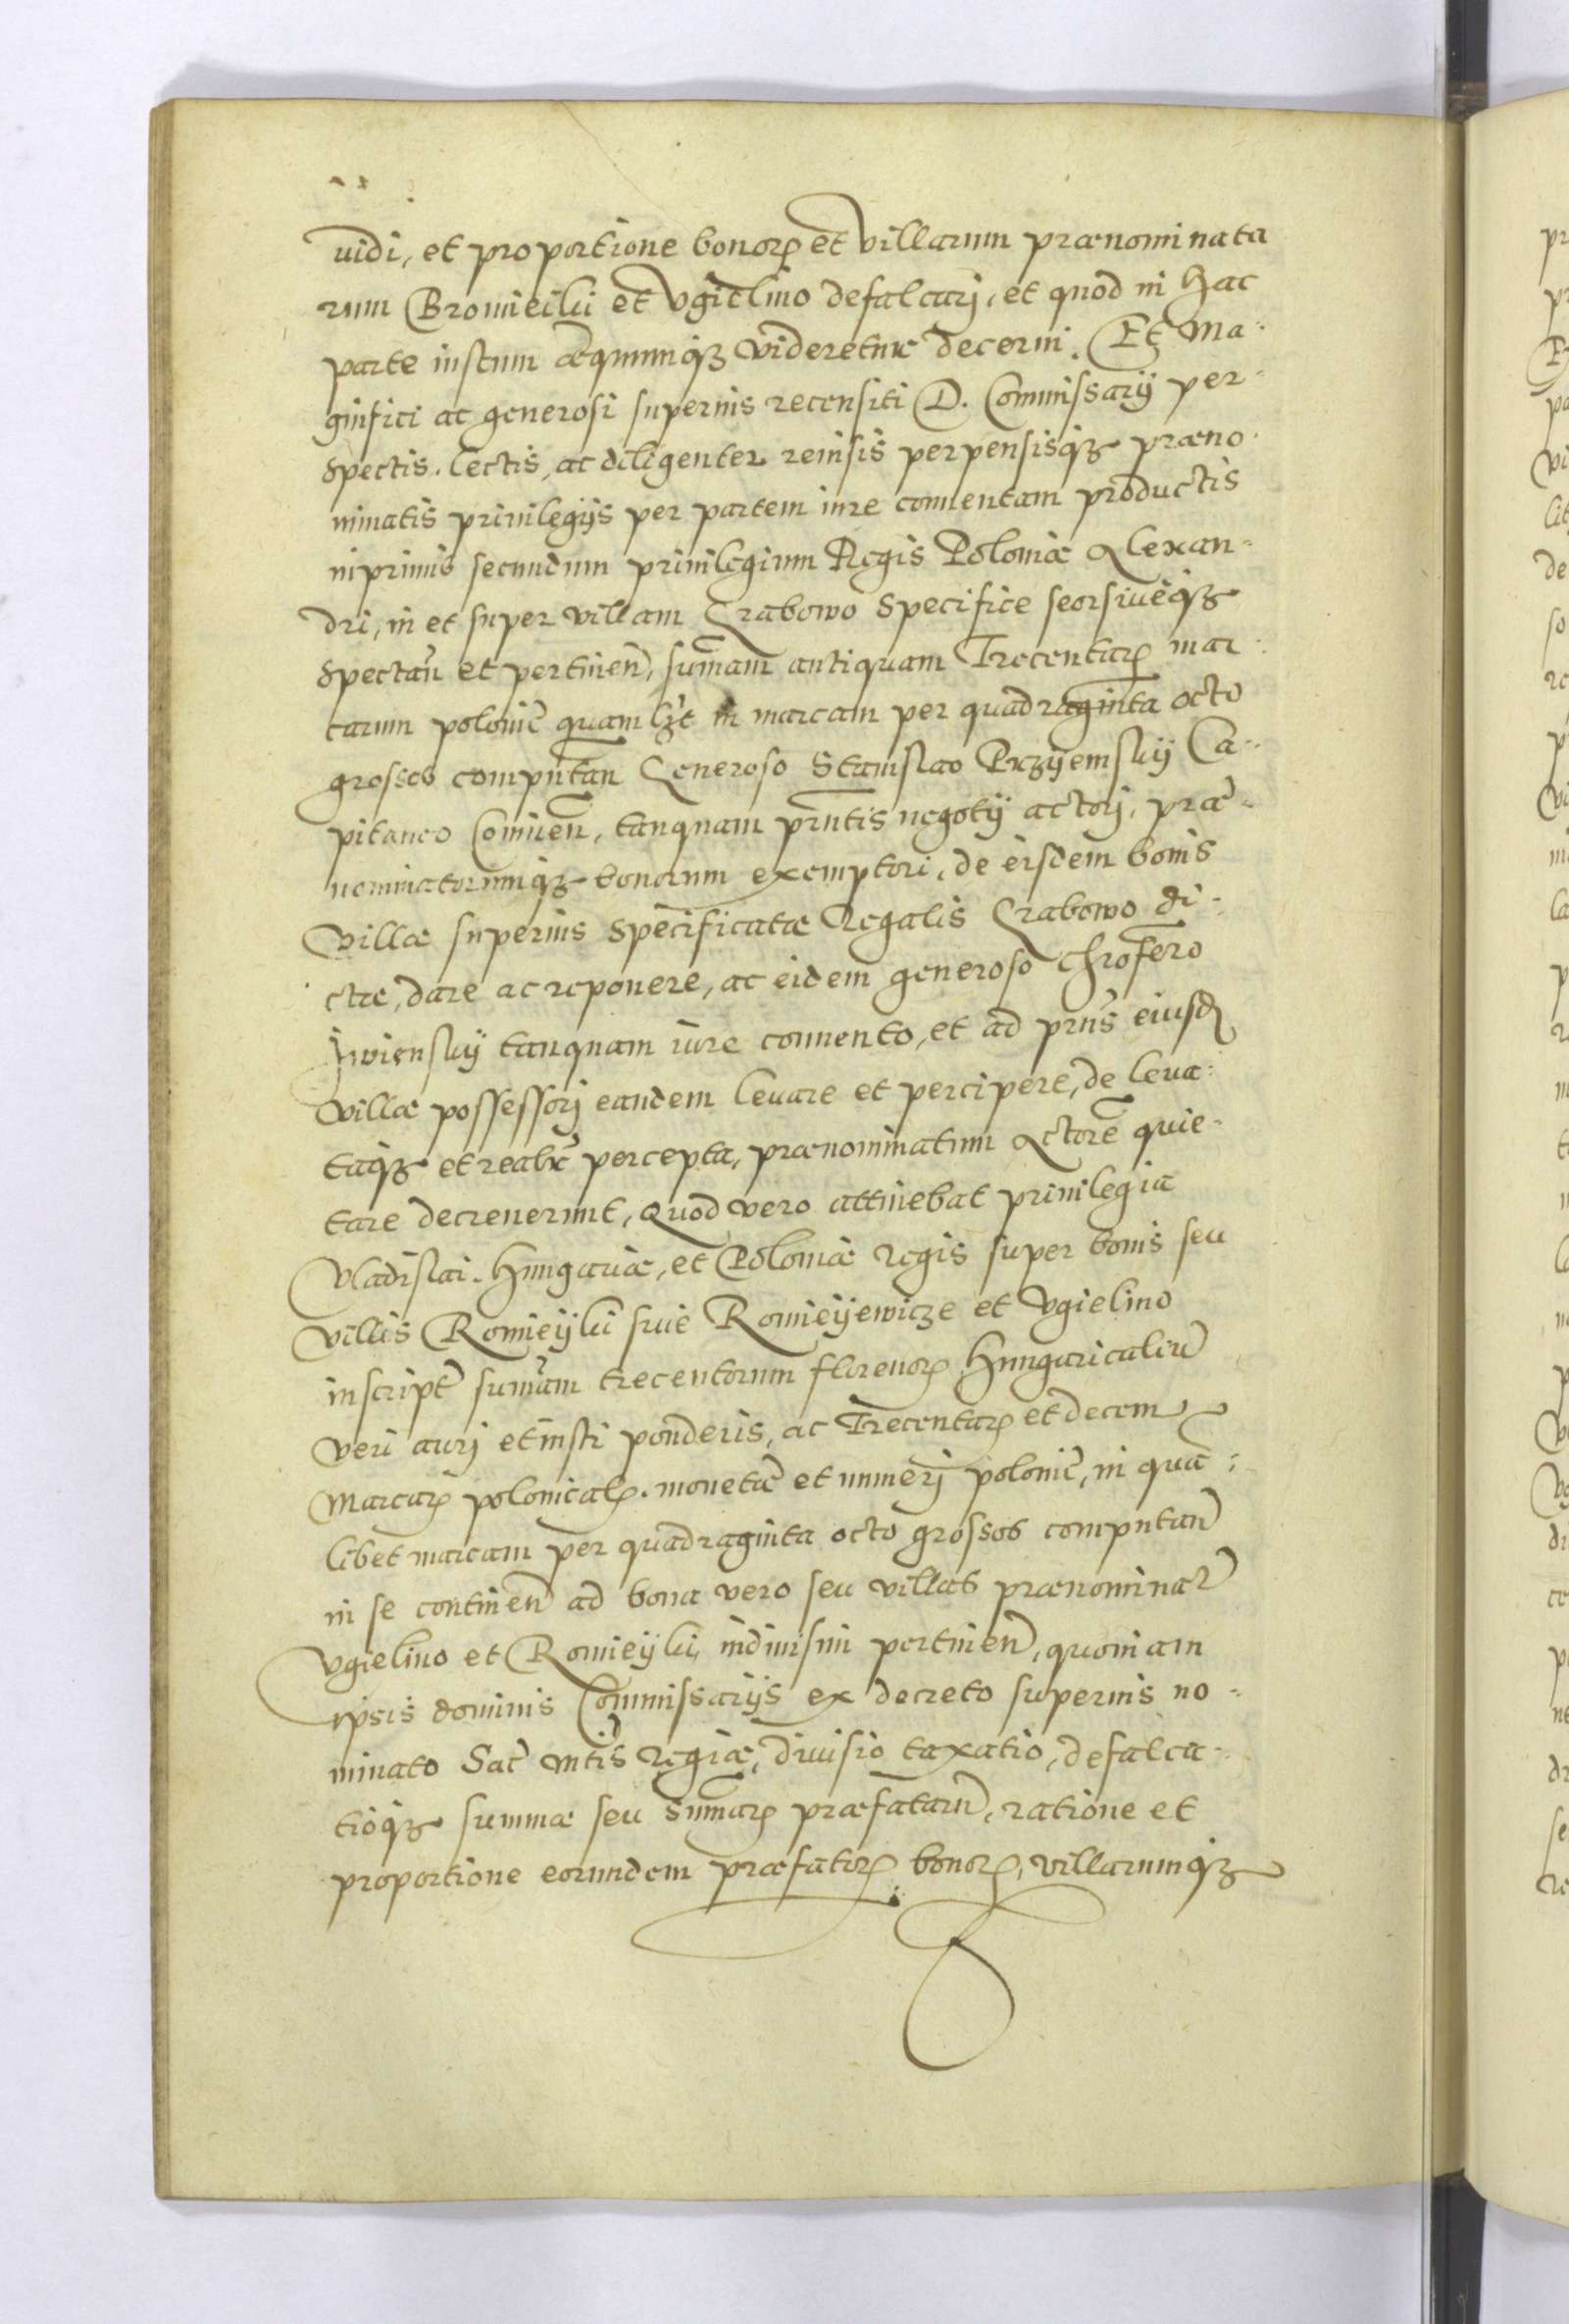 uidi, et proportione bonorꝝ et villarum prænominata
rum Bromieiki et Vgielino defalcarj, et quod in hac
parte iustum æquumqꝫ videretur decerni. Et Ma-
gnifici ac generosi superius recensiti D. Commissarij per-
spectis, lectis, ac diligenter reuisis perpensisqꝫ præno-
minatis priuilegijs per partem iure conuentam productis
inprimis secundum priuilegium Regis Poloniæ Alexan-
dri, in et super villam Grabowo specifice seorsiueqꝫ
spectan̄ et pertinen̄, sum̄am antiquam Trecentarꝝ mar-
carum polonic̄ quamlꝫt in marcam per quadraginta octo
grossos computan̄ Generoso Stanislao Przyemskij Ca-
pitaneo Coninen̄, tanquam pr̄ntis negotij actorj, præ-
nominatorumqꝫ bonorum exemptori, de eisdem bonis
Villæ superius specificatæ Regalis Grabowo di-
ctæ, dare ac reponere, ac eidem generoso Chrōfero
Iwienskij tanquam iure conuento, et ad pr̄ns eiusdꝫ
villæ possessorj eandem leuare et percipere, de leua-
taqꝫ et realr̄ percepta, prænominatum Actorē quie-
tare decreuerunt, Quod vero attinebat priuilegia
Vladislai Hungariæ, et Poloniæ Regis super bonis seu
villis Romieijki siue Romieijewicze et Vgielino
inscript̄ sum̄am trecentorum florenorꝝ Hungaricaliū
veri aurj et iusti ponderis, ac Trecentarꝝ et decem
Marcarꝝ polonicalꝝ. monetæ et numerj polonic̄, in quā-
libet marcam per quadraginta octo grossos computan̄
in se continen̄ ad bona vero seu villas prænominat̄
Vgielino et Romieijki, indiuisim pertinen̄, quoniam
ipsis dominis Commissarijs ex decreto superius no-
minato Sac̄ Mtis Regiæ, diuisio taxatio, defalca-
tioqꝫ summæ seu sum̄arꝝ præfatarū, ratione et
proportione eorundem præfatorꝝ bonorꝝ, villarumqꝫ